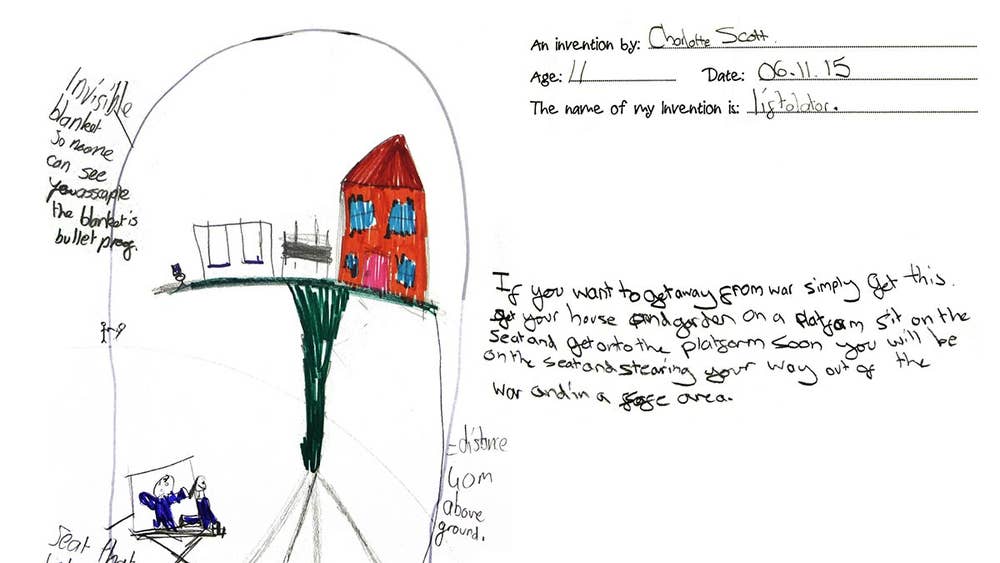 An invention by: Charlotte Scott.
Age: 11 Date: 06.11.15
The name of my Invention is: Liftolator.
Invisible
blanket
So noone
can see
you
the blanket is
bullet proof.
If you want to get away from war simply get this.
get your house and garden on a platform sit on the
seat and get onto the platform soon you will be
on the seat and stearing your way out of the
war and in a safe area.
= distance
40m
above
ground.
Seat that